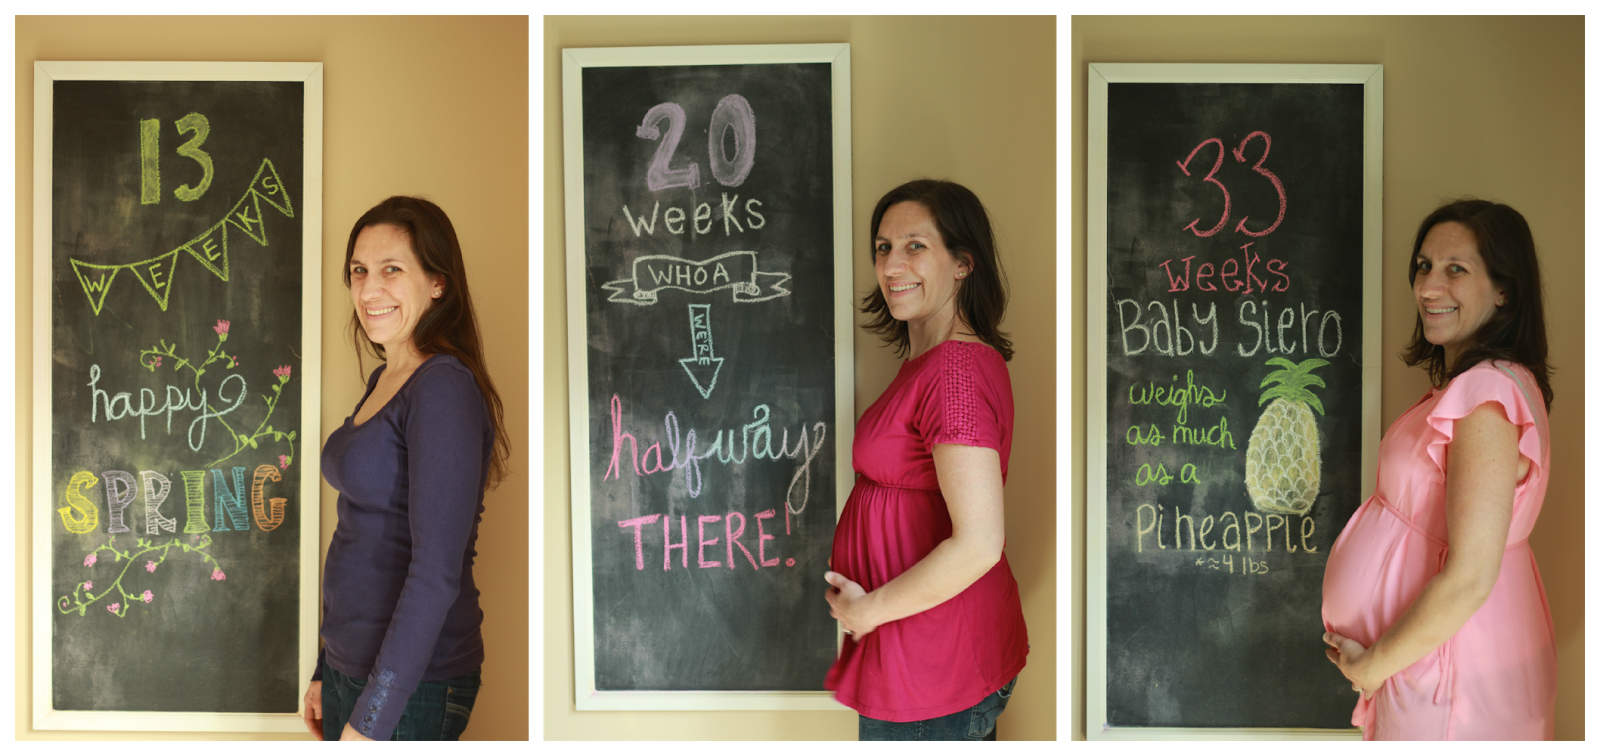 13
WEEKS
happy
SPRING
20
weeks
WHOA
WE'RE
halfway
THERE!
33
weeks
Baby Siero
weighs
as much
as a
Pineapple
*≈4 lbs